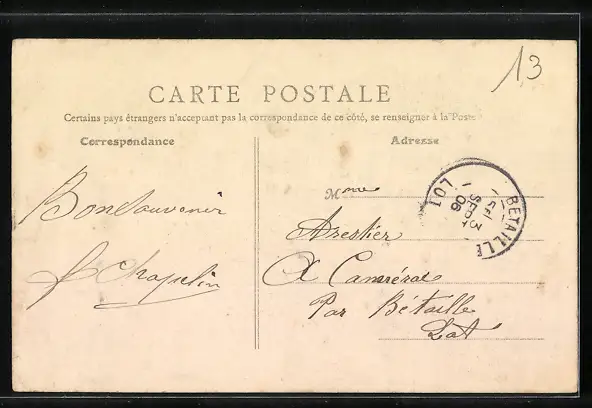 13
CARTE POSTALE
Certains pays étrangers n'acceptant pas la correspondance de ce côté, se renseigner à la Poste
Correspondance
Adresse
Bon Souvenir
Chapelin
Mme
A
Par Bétaille
Lot
BETAILLE
3
SEPT
06
LOT